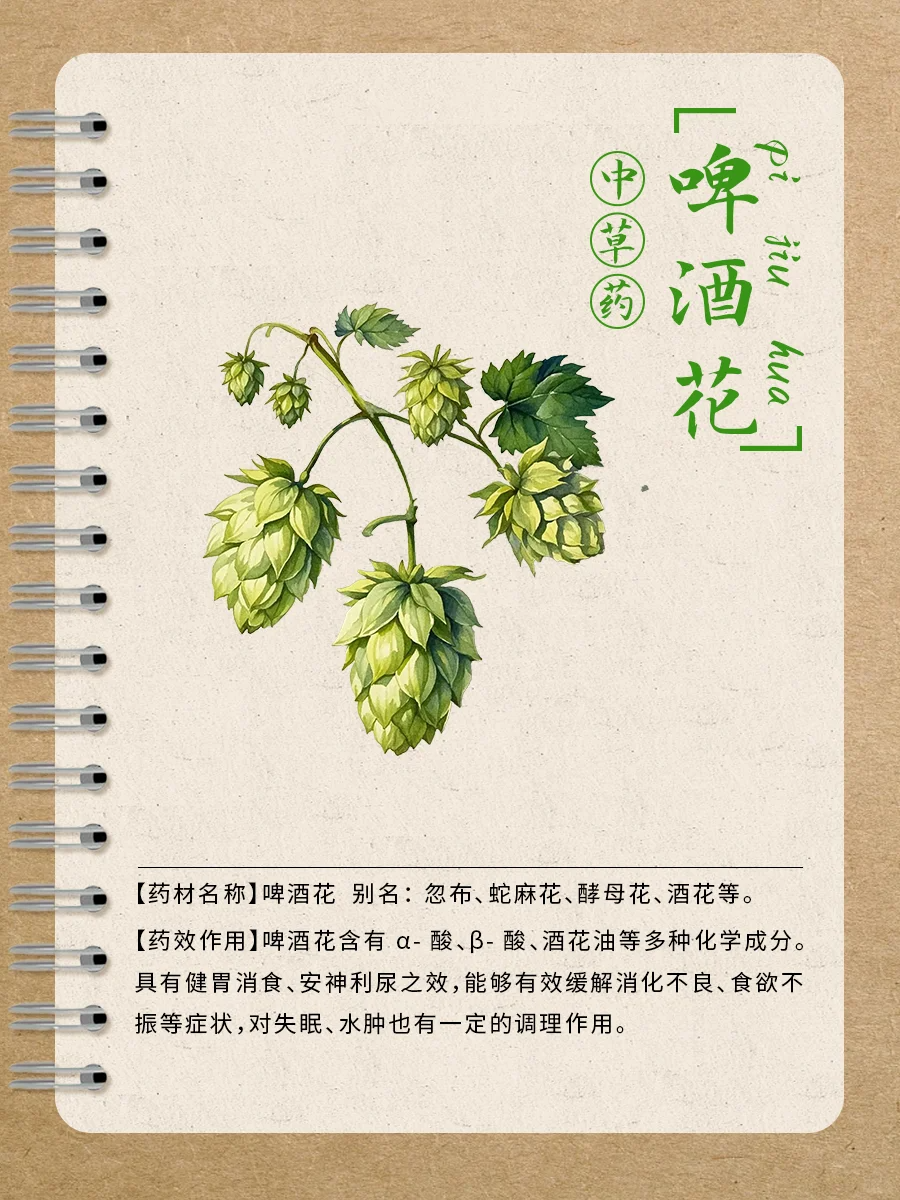 啤酒花
pi jiu hua
中草药
【药材名称】啤酒花 别名：忽布、蛇麻花、酵母花、酒花等。
【药效作用】啤酒花含有 α- 酸、β- 酸、酒花油等多种化学成分。
具有健胃消食、安神利尿之效，能够有效缓解消化不良、食欲不
振等症状，对失眠、水肿也有一定的调理作用。